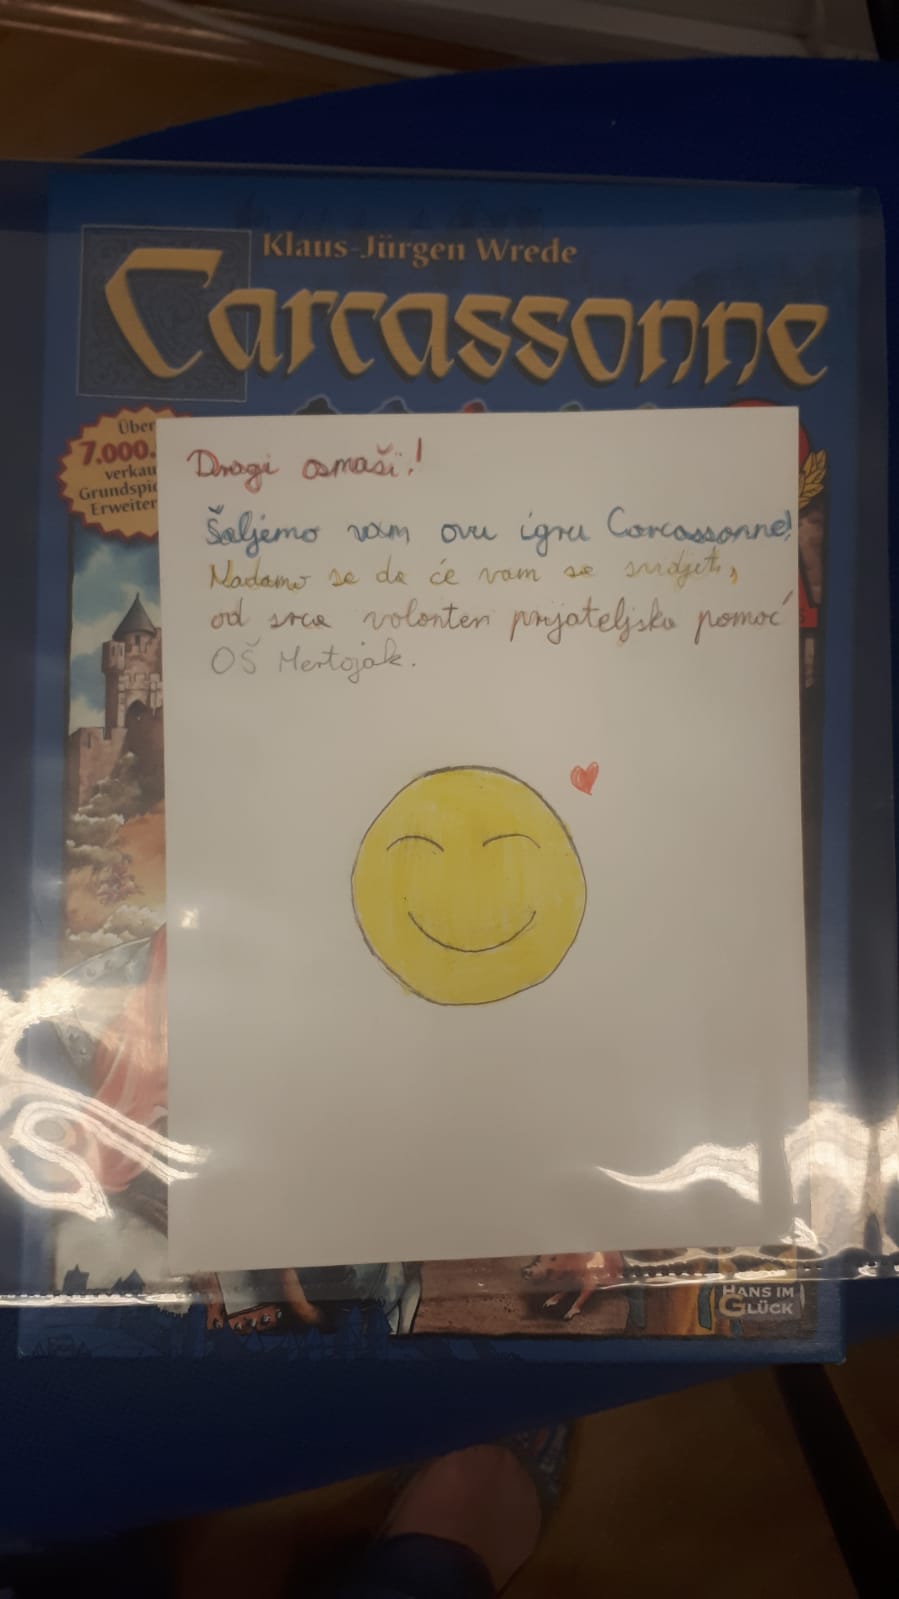 Klaus-Jürgen Wrede
Carcassonne
Über
7.000.
verkau
Grundspie
Erweiter
Dragi osmaši!
Šaljemo vam ovu igru Carcassonne!
Nadamo se da će vam se svidjeti,
od srca volonteri prijateljska pomoć
OŠ Mertojak.
HANS IM
GLÜCK